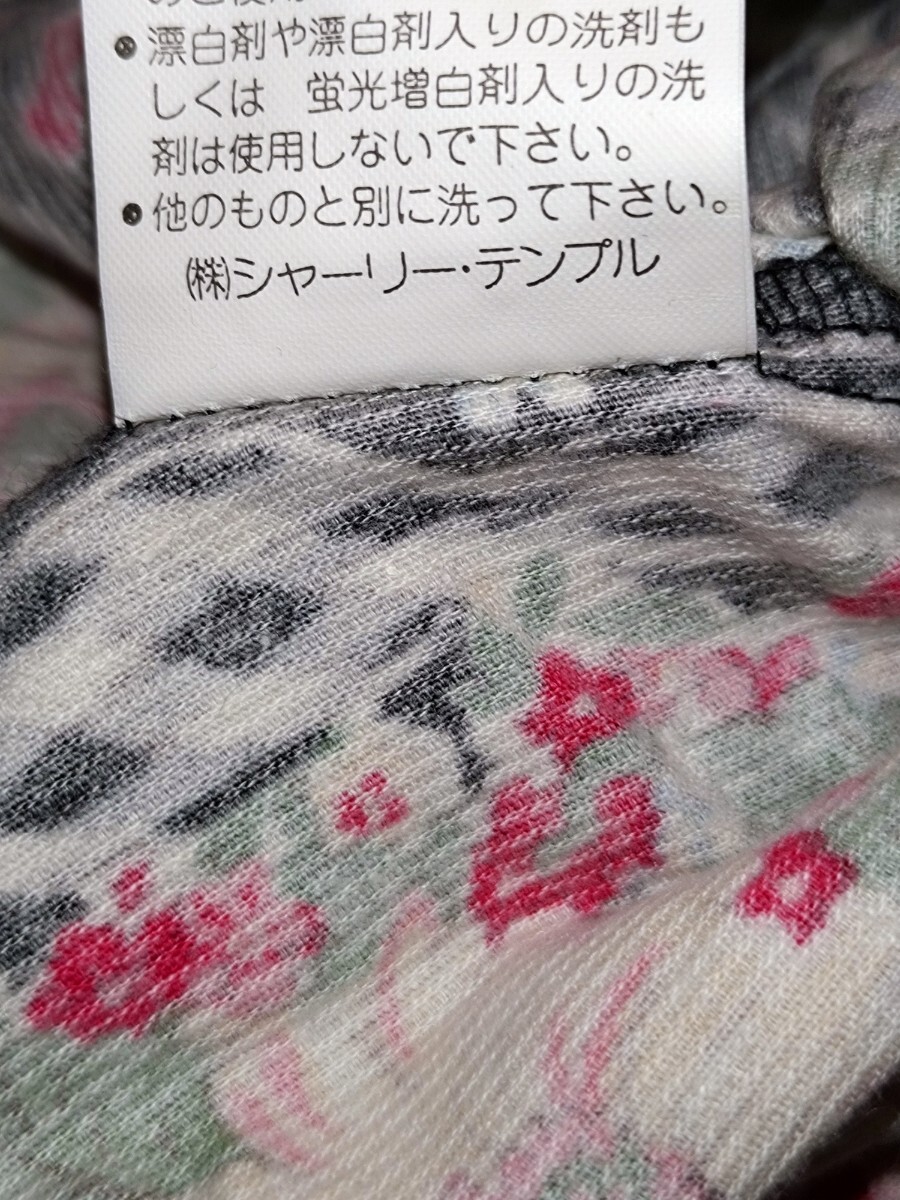 のご使用
● 漂白剤や漂白剤入りの洗剤も
しくは 蛍光増白剤入りの洗
剤は使用しないで下さい。
● 他のものと別に洗って下さい。
㈱シャーリー・テンプル